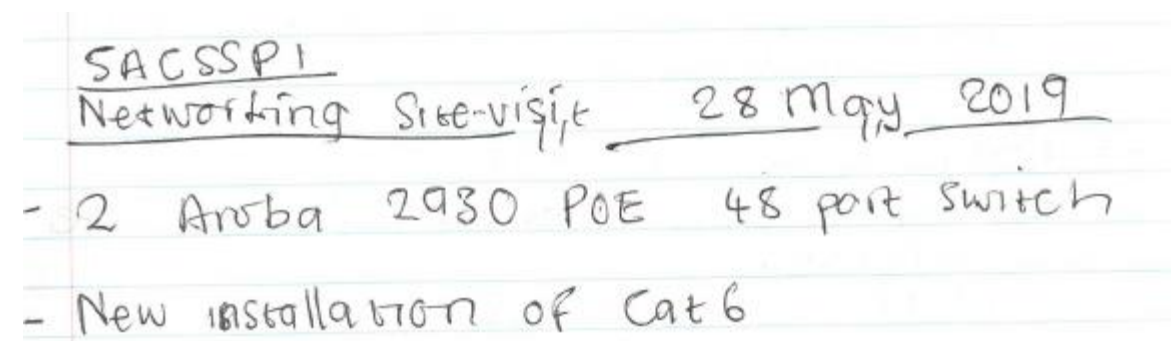 SACSSP1
Networking Site-visit 28 May 2019
- 2 Aruba 2930 POE 48 port switch
- New installation of Cat 6